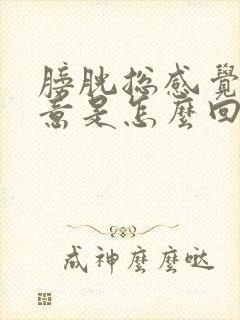 膀胱總感覺
意是怎麼回
成神麼麼噠